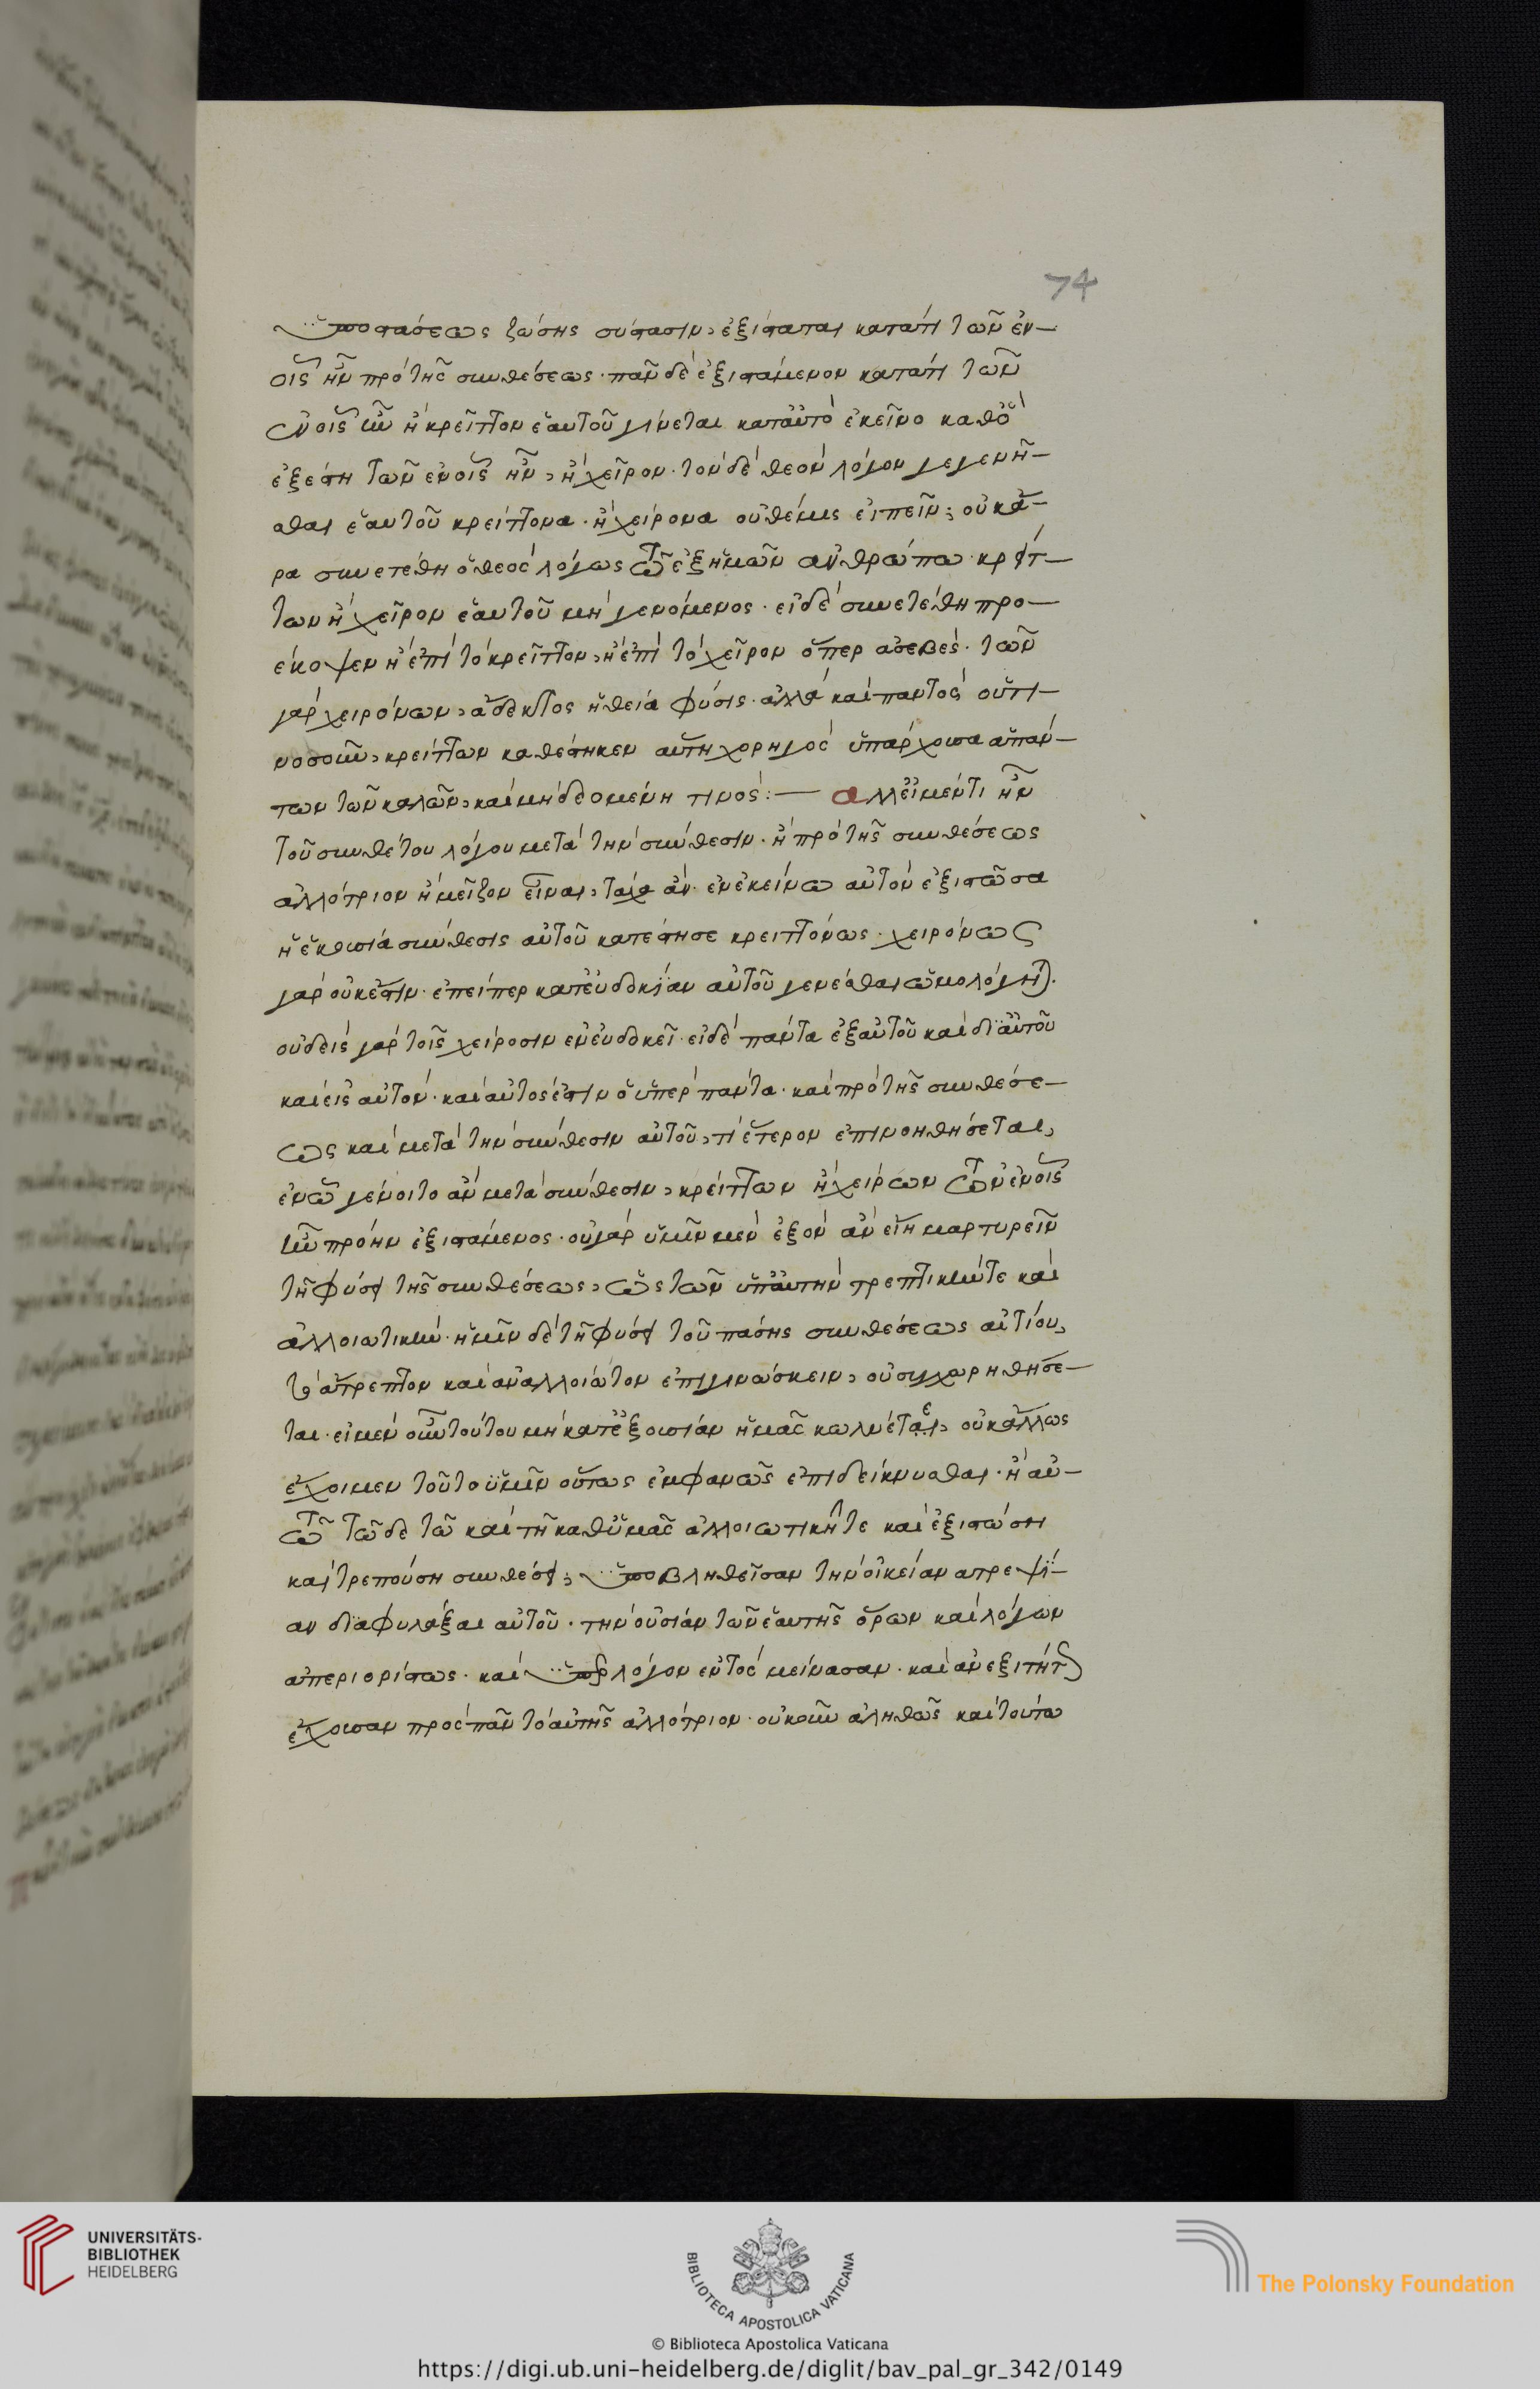 74
ὑποστάσεως ζώσης σύστασιν, ἐξίσταται κατά τι τῶν ἐν
οἷς ἦν πρὸ τῆς συνθέσεως· πᾶν δὲ ἐξιστάμενον κατά τι τῶν
ἐν οἷς ἦν ἢ κρεῖττον ἑαυτοῦ γίνεται κατ' αὐτὸ ἐκεῖνο καθ' ὃ
ἐξέστη τῶν ἐν οἷς ἦν, ἢ χεῖρον· τὸν δὲ θεὸν λόγον γεγενῆ-
σθαι ἑαυτοῦ κρείττονα· ἢ χείρονα οὐ θέμις εἰπεῖν; οὐκ ἄ-
ρα συνετέθη ὁ θεὸς λόγος τῶ ἐξ ἡμῶν ἀνθρώπω· κρείτ-
των ἢ χεῖρον ἑαυτοῦ μὴ γενόμενος· εἰ δὲ συνετέθη προ-
έκοψεν ἢ ἐπὶ τὸ κρεῖττον, ἢ ἐπὶ τὸ χεῖρον ὅπερ ἀσεβές· τῶν
γὰρ χειρόνων, ἄδεκτος ἡ θεία φύσις· ἀλλὰ καὶ παντὸς οὕτι-
νοσοῦν, κρείττων καθέστηκεν αὕτη χορηγὸς ὑπάρχουσα ἁπάν-
των τῶν καλῶν, καὶ μὴ δεομένη τινός:— Ἀλλ' εἰ μέν τι ἦν
τοῦ συνθέτου λόγου μετὰ τὴν σύνθεσιν· ἢ πρὸ τῆς συνθέσεως
ἀλλότριον ἢ μεῖζον εἶναι, τάχα ἂν· ἐν ἐκείνω αὐτὸν ἐξιστῶσα
ἡ ἑκουσία σύνθεσις αὐτοῦ κατέστησε κρειττόνως· χειρόνως
γὰρ οὐκ ἔστιν· ἐπείπερ κατ' εὐδοκίαν αὐτοῦ γενέσθαι ὡμολόγηται.
οὐδεὶς γὰρ τοῖς χείροσιν ἐνευδοκεῖ· εἰ δὲ πάντα ἐξ αὐτοῦ καὶ δι' αὐτοῦ
καὶ εἰς αὐτόν· καὶ αὐτός ἐστιν ὁ ὑπὲρ πάντα· καὶ πρὸ τῆς συνθέσε-
ως καὶ μετὰ τὴν σύνθεσιν αὐτοῦ, τί ἕτερον ἐπινοηθήσεται,
ἐν ὧ γένοιτο ἂν μετὰ σύνθεσιν, κρείττων ἢ χείρων τῶν ἐν οἷς
ἦν πρόην ἐξιστάμενος· οὐ γὰρ ὑμῖν μὲν ἐξὸν ἂν εἴη μαρτυρεῖν
τῆ φύσει τῆς συνθέσεως, ὡς τῶν ὑπ' αὐτὴν τρεπτικήν τε καὶ
ἀλλοιωτικήν· ἡμῖν δὲ τῆ φύσει τοῦ πάσης συνθέσεως αἰτίου,
τὸ ἄτρεπτον καὶ ἀναλλοίωτον ἐπιγινώσκειν, οὐ συγχωρηθήσε-
ται· εἰ μὲν οὖν τούτου μὴ κατ' ἐξουσίαν ἡμᾶς κωλύεται, οὐκ ἄλλως
ἔχοιμεν τοῦτο ὑμῖν οὕτως ἐμφανῶς ἐπιδείκνυσθαι· ἢ αὐ-
τῶ τῶδε τῶ καὶ τῆ καθ' ὑμᾶς ἀλλοιωτικῆ τε καὶ ἐξιστώση
καὶ τρεπούση συνθέσει; ὑποβληθεῖσαν τὴν οἰκείαν ἀτρεψί-
αν διαφυλάξαι αὐτοῦ· τὴν οὐσίαν τῶν ἑαυτῆς ὅρων καὶ λόγων
ἀπεριορίστως· καὶ ὑπὲρ λόγον ἐντὸς μείνασαν· καὶ ἀνεξιτήτως
ἔχουσαν πρὸς πᾶν τὸ αὐτῆς ἀλλότριον· οὐκοῦν ἀληθῶς καὶ τούτω
UNIVERSITÄTS-
BIBLIOTHEK
HEIDELBERG
BIBLIOTECA APOSTOLICA VATICANA
The Polonsky Foundation
© Biblioteca Apostolica Vaticana
https://digi.ub.uni-heidelberg.de/diglit/bav_pal_gr_342/0149